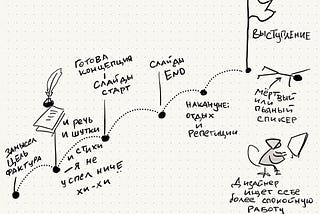 ЗАМЫСЕЛ
ЦЕЛЬ
ФАКТУРА
И РЕЧЬ
И ШУТКИ
И СТИХИ
- Я НЕ
УСПЕЛ НИЧЕ
ХИ-ХИ
ГОТОВА
КОНЦЕПЦИЯ
СЛАЙДЫ
СТАРТ
СЛАЙДЫ
END
НАКАНУНЕ:
ОТДЫХ
И
РЕПЕТИЦИИ
ВЫСТУПЛЕНИЕ
МЁРТВЫЙ
ИЛИ
ПЬЯНЫЙ
СПИКЕР
ДИЗАЙНЕР
ИЩЕТ СЕБЕ
БОЛЕЕ СПОКОЙНУЮ
РАБОТУ